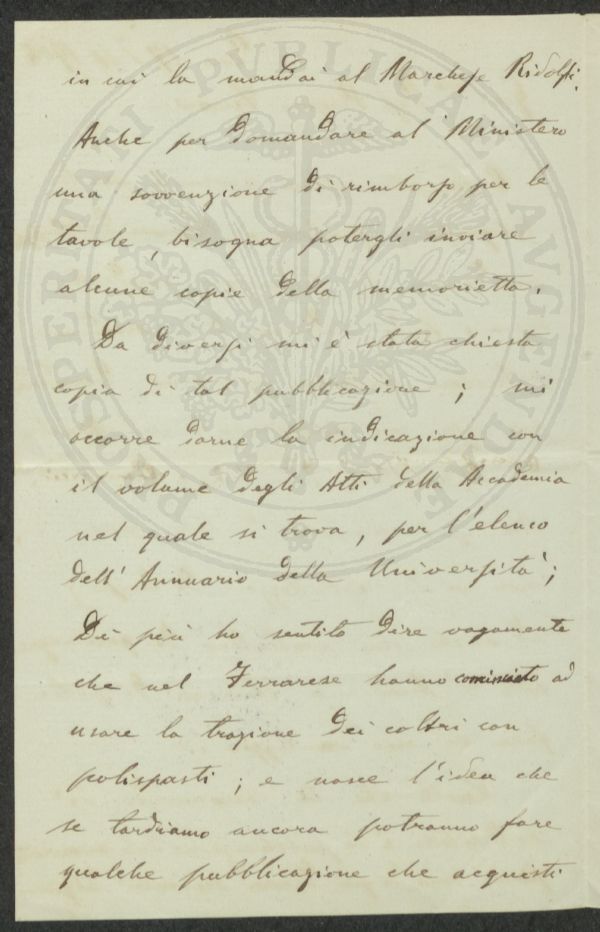 in cui la mandai al Marchese Ridolfi.
Anche per domandare al Ministero
una sovvenzione di rimborso per le
tavole, bisogna potergli inviare
alcune copie della memorietta.
Da diversi mi è stata chiesta
copia di tal pubblicazione; mi
occorre darne la indicazione con
il volume degli Atti della Accademia
nel quale si trova, per l'elenco
dell'Annuario della Università;
Di più ho sentito dire vagamente
che nel Ferrarese hanno cominciato ad
usare la trazione dei coltri con
polispasti; e nasce l'idea che
se tardiamo ancora potranno fare
qualche pubblicazione che acquisti
PROSPERITATI PUBLICAE AUGENDAE